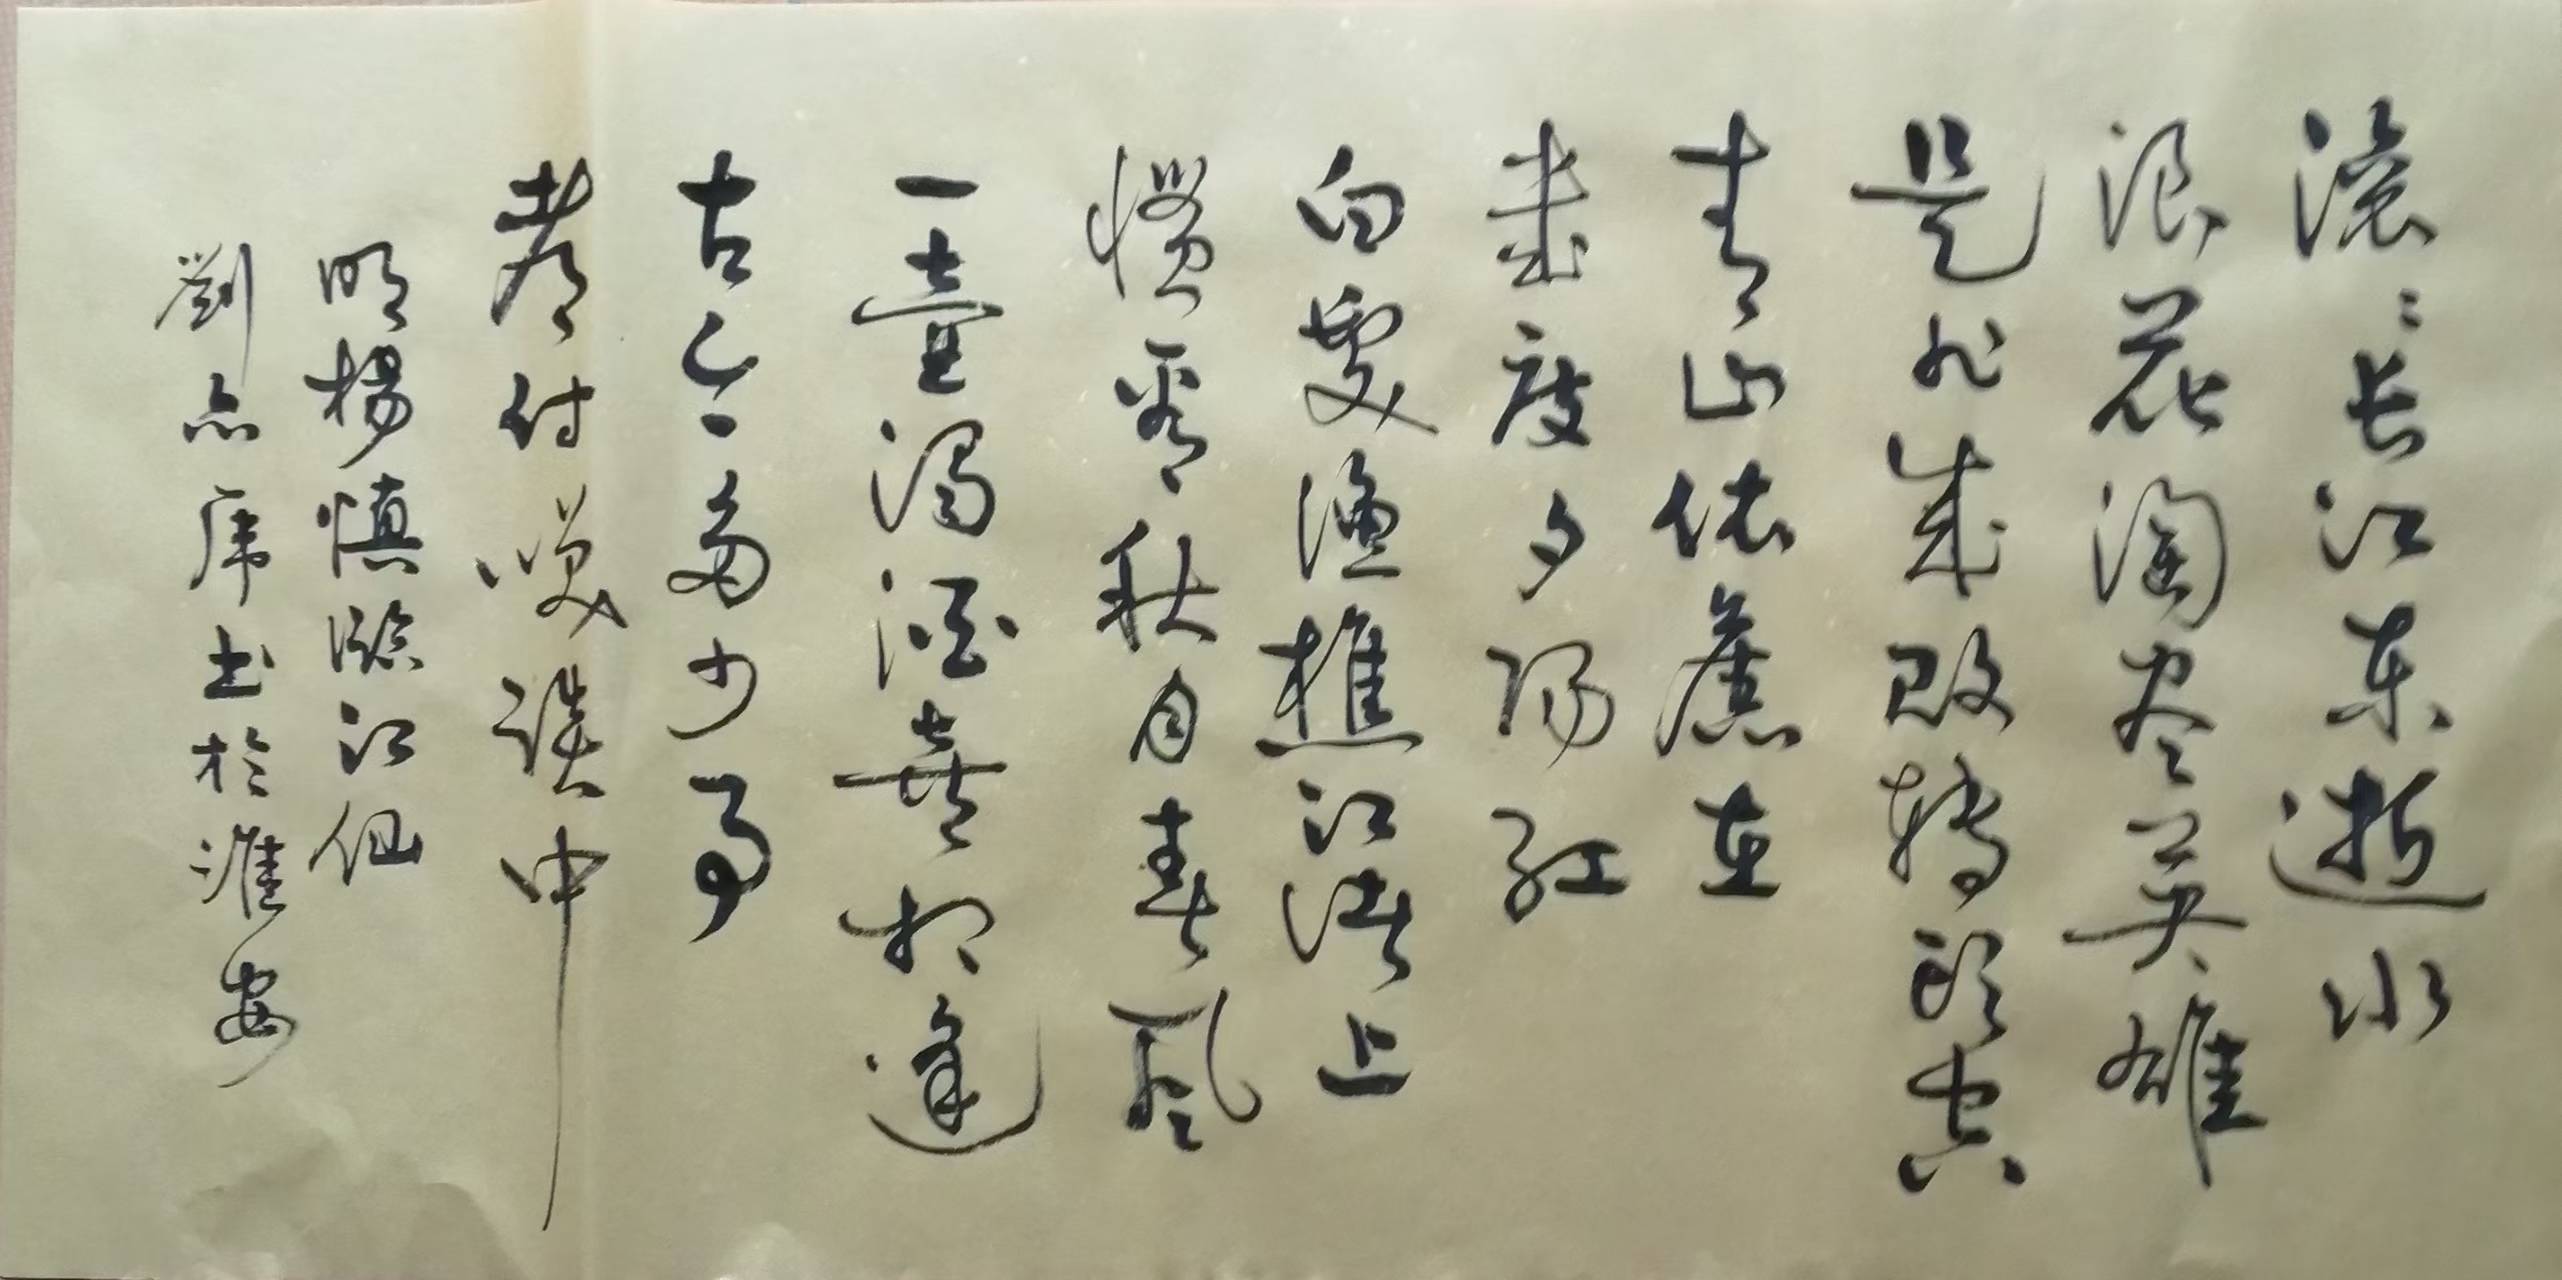 滚〻长江东逝水
浪花淘尽英雄
是非成败转头空
青山依旧在
幾度夕阳红
白发渔樵江渚上
惯看秋月春风
一壶浊酒喜相逢
古今多少事
都付笑谈中
明杨慎临江仙
劉亦庸书於淮安